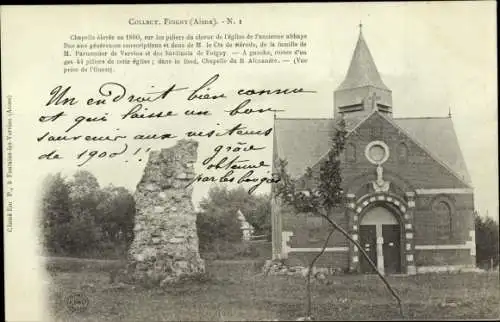 COLLECT. FOIGNY (AISNE). - N. 1
Chapelle élevée en 1860, sur les piliers du chœur de l'église de l'ancienne abbaye
Due aux généreuses souscriptions et dons de M. le Cte de de la famille de
M. Parmentier de Vervins et des habitants de Foigny. — A gauche, ruines d'un
des 44 piliers de cette église ; dans le fond, Chapelle du B Alexandre. — (Vue
prise de l'Ouest).
Un endroit bien connu
et qui laisse un bon
souvenir aux visiteurs
de 1900 !!
grâce
obtenue
par les
Cliché Enc. P., à Fontaine-les-Vervins (Aisne)